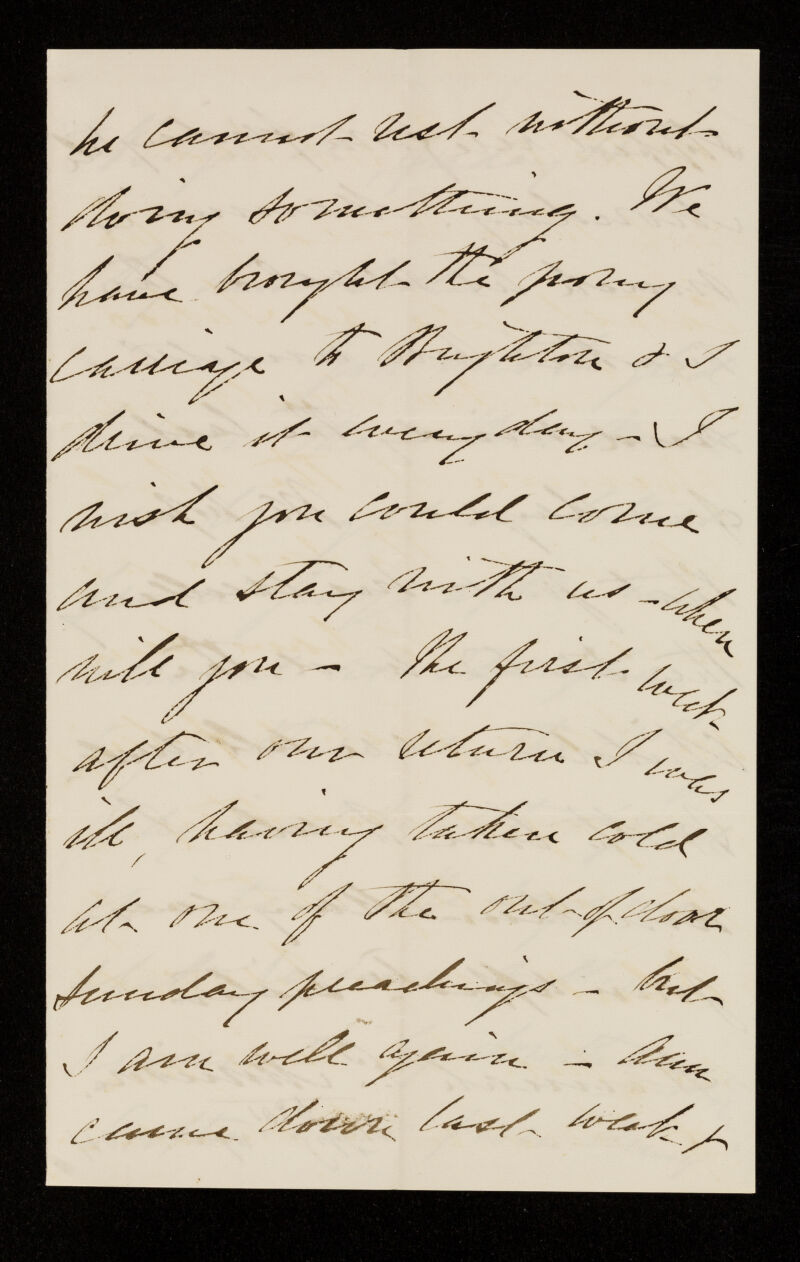 he cannot rest without
doing something. We
have brought the pony
carriage to Brighton & I
drive it every day - I
wish you could come
and stay with us - when
will you - The first week
after our return I was
ill, having taken cold
at one of the out-of-door
Sunday preachings - but
I am well again -
came down last week &